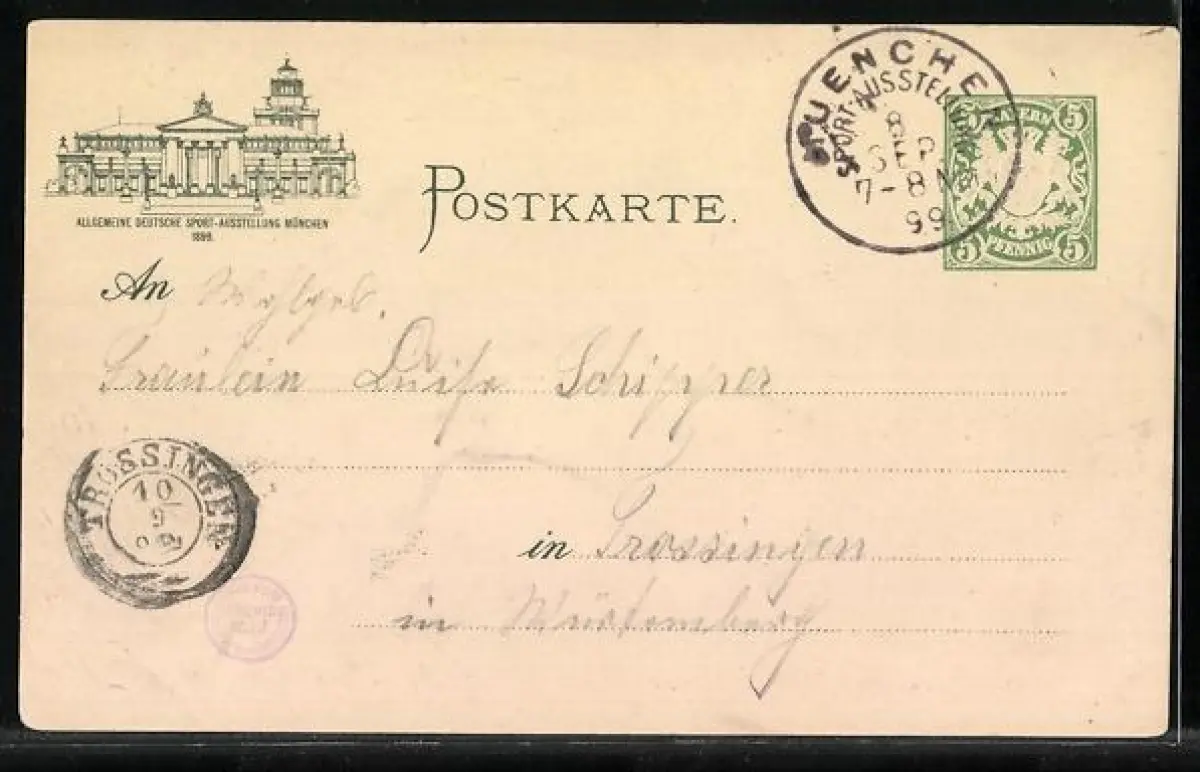 ALLGEMEINE DEUTSCHE SPORT-AUSSTELLUNG MÜNCHEN
1899.
POSTKARTE.
MUENCHEN
SPORT-AUSSTELLUNG
8
SEP
7-8 N
99
BAYERN
5 5
PFENNIG
5 5
An
Fräulein Luise Schipper
TROSSINGEN
10
9
in Trossingen
in Württemberg